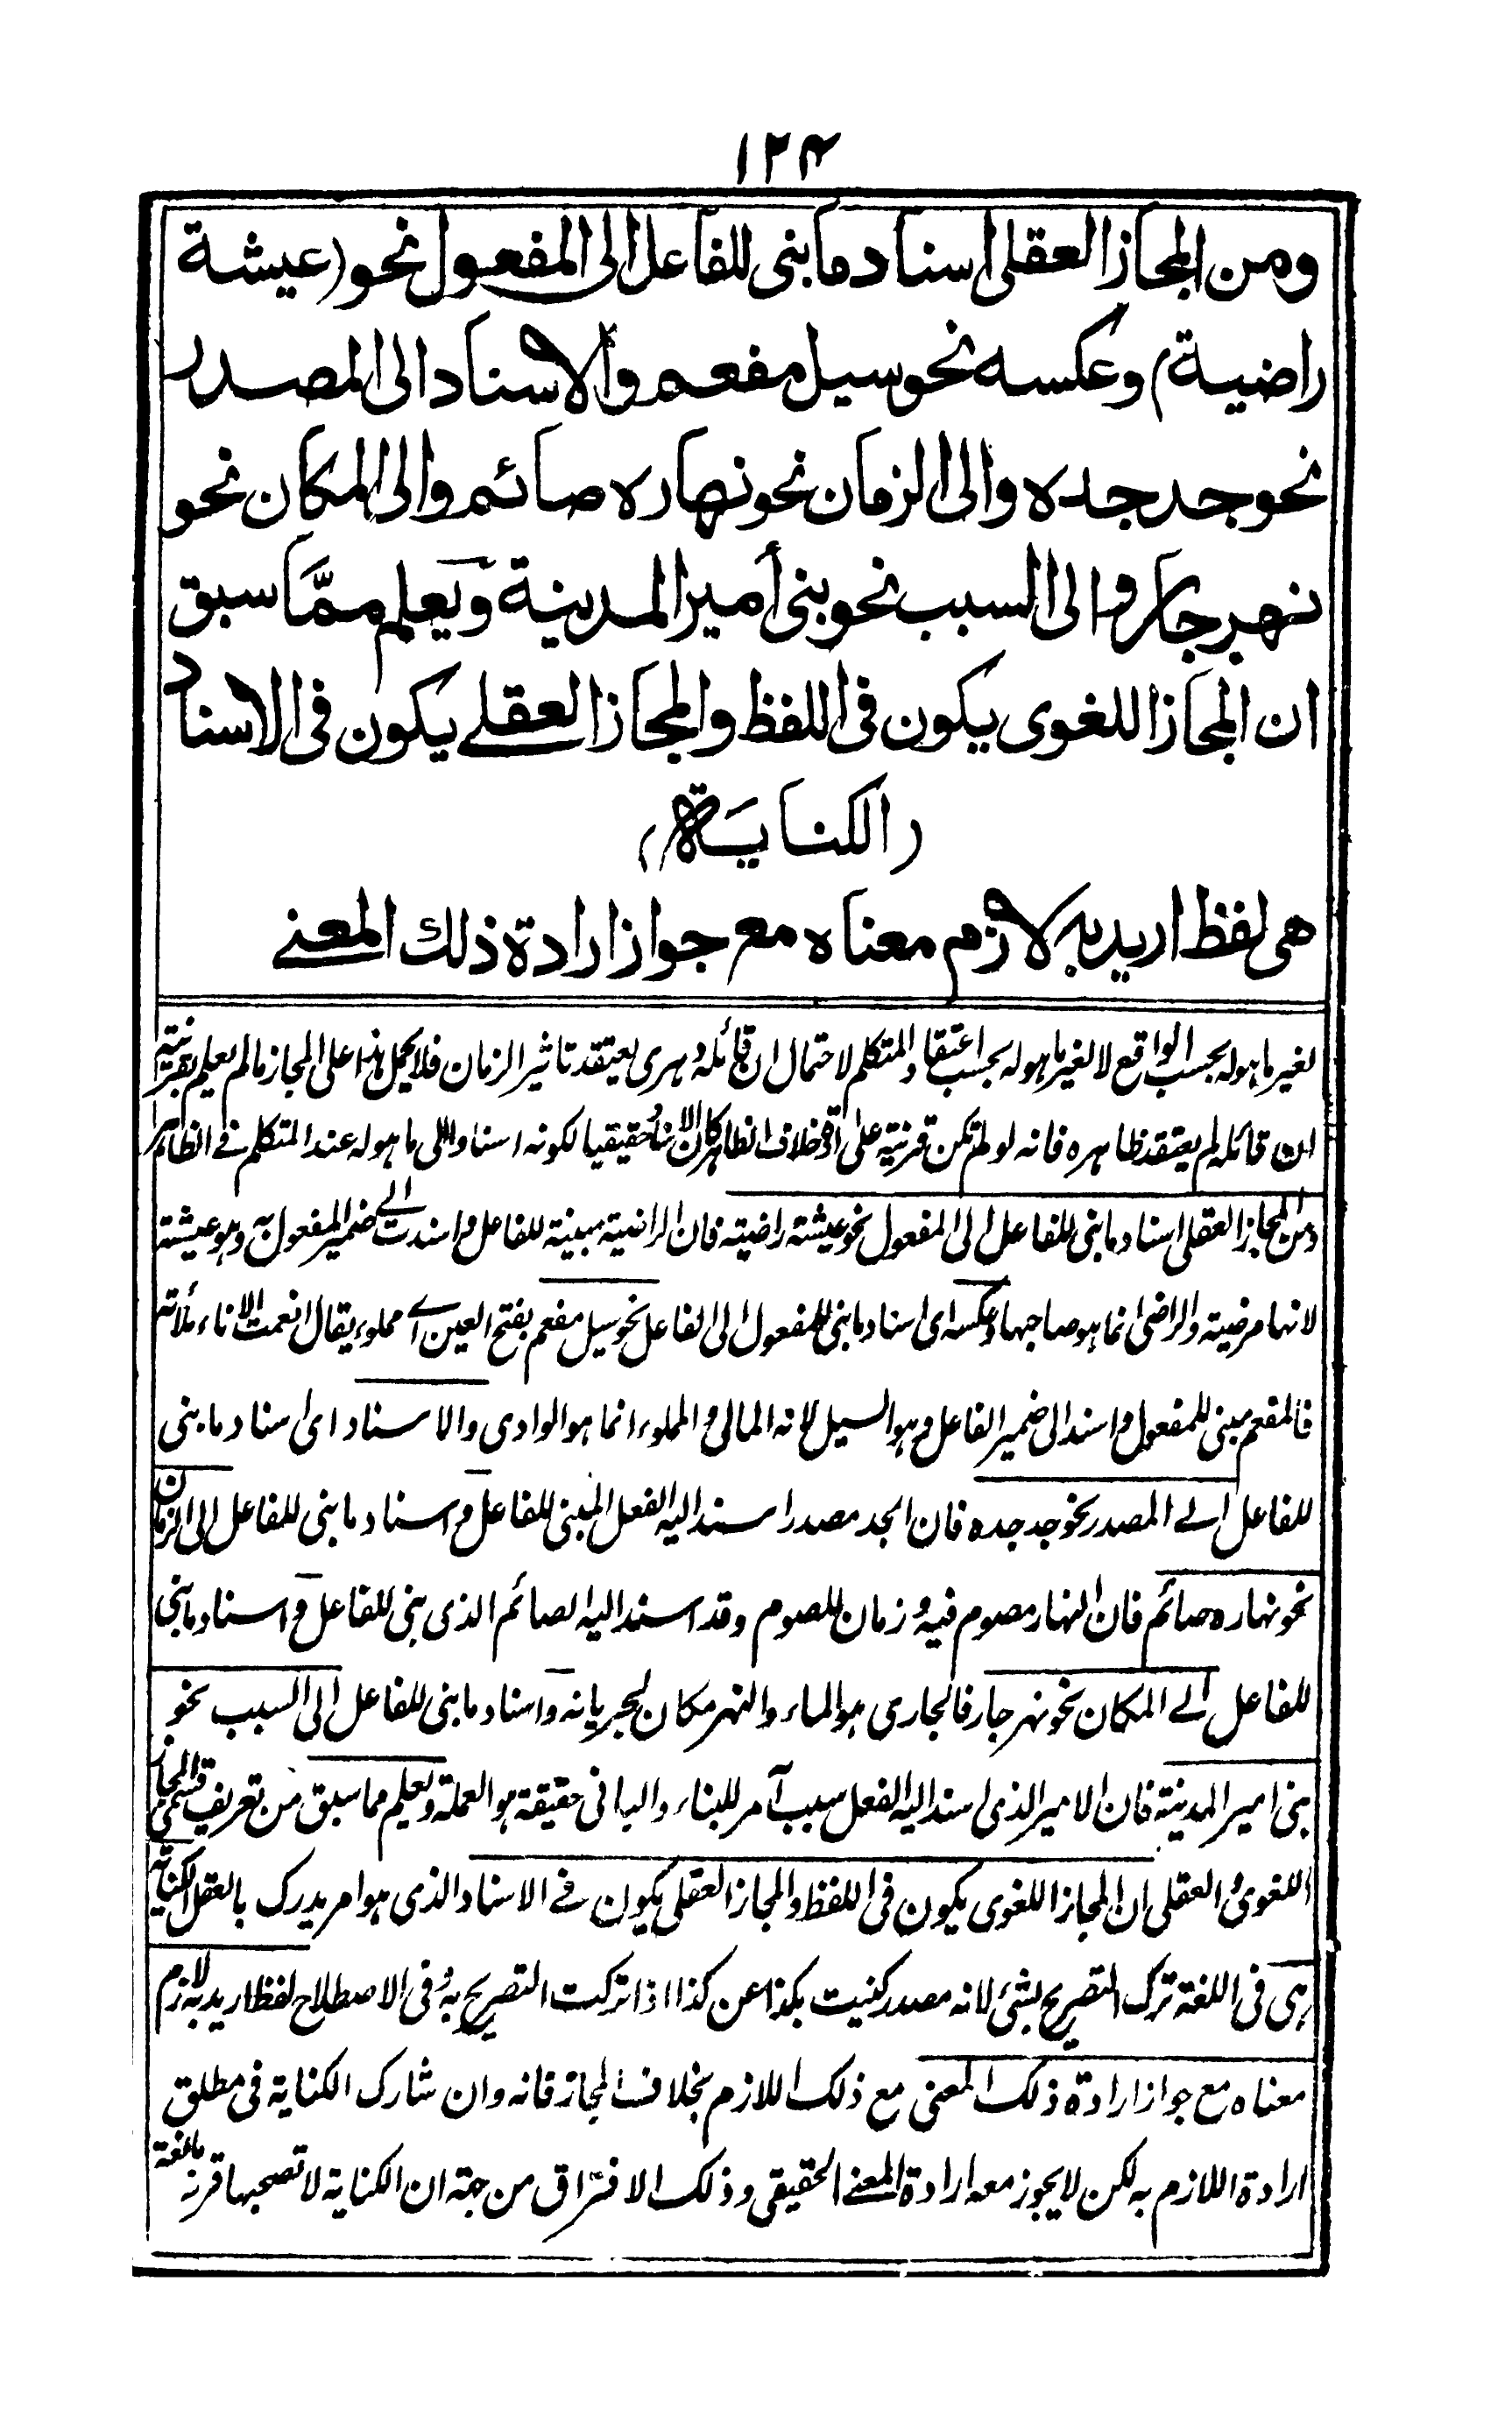 ١٢٤
ومن المجاز العقلى اسناد ما بنى للفاعل الى المفعول نحو (عيشة
راضية) وعكسه نحو سيل مفعم والاسناد الى المصدر
نحو جد جده والى الزمان نحو نهاره صائم والى المكان نحو
نهر جار والى السبب نحو بنى أمير المدينة ويعلم ممَّا سبق
ان المجاز اللغوى يكون فى اللفظ والمجاز العقلے يكون فى الاسناد
(الكناية)
هى لفظ اريد به لازم معناه مع جواز ارادة ذلك المعنے
لغير ما هو له بحسب الواقع لا لغير ما هو له بحسب اعتقاد المتكلم لاحتمال ان قائله دهرى يعتقد تاثير الزمان فلا يحمل هذا على المجاز مالم يعلم بقرينة
ان قائله لم يعتقد ظاهره فانه لو لم تكن قرينة على ارادة خلاف الظاهر كان الاسناد حقيقيا لكونه اسنادا الى ما هو له عند المتكلم فے الظاهر
ومن المجاز العقلى اسناد ما بنى للفاعل الى المفعول نحو عيشة راضية فان الراضية مبنية للفاعل واسندت الے ضمير المفعول به وهو عيشة
لانها مرضية والراضى انما هو صاحبها وعكسه اى اسناد ما بنى للمفعول الى الفاعل نحو سيل مفعم بفتح العين اے مملوء يقال افعمت الاناء ملأته
فالمفعم مبنى للمفعول واسند الى ضمير الفاعل وهو السيل لانه المالى والمملوء انما هو الوادى والاسناد اى اسناد ما بنى
للفاعل الے المصدر نحو جد جده فان الجد مصدر اسند اليه الفعل المبنى للفاعل واسناد ما بنى للفاعل الى الزمان
نحو نهاره صائم فان النهار مصوم فيه وزمان للصوم وقد اسند اليه الصائم الذى بنى للفاعل واسناد ما بنى
للفاعل الے المكان نحو نهر جار فالجارى هو الماء والنهر مكان لجريانه واسناد ما بنى للفاعل الى السبب نحو
بنى امير المدينة فان الامير الذى اسند اليه الفعل سبب آمر للبناء والبانى حقيقة هو العملة ويعلم مما سبق من تعريف قسمى المجاز
اللغوى والعقلى ان المجاز اللغوى يكون فى اللفظ والمجاز العقلى يكون فے الاسناد الذى هو امر يدرك بالعقل الكناية
هى فى اللغة ترك التصريح بشئ لانه مصدر كنيت بكذا عن كذا اذا تركت التصريح به وفى الاصطلاح لفظ اريد به لازم
معناه مع جواز ارادة ذلك المعنى مع ذلك اللازم بخلاف المجاز فانه وان شارك الكناية فى مطلق
ارادة اللازم به لكن لا يجوز معه ارادة المعنے الحقيقى وذلك الافتراق من جهة ان الكناية لا تصحبها قرينة مانعة